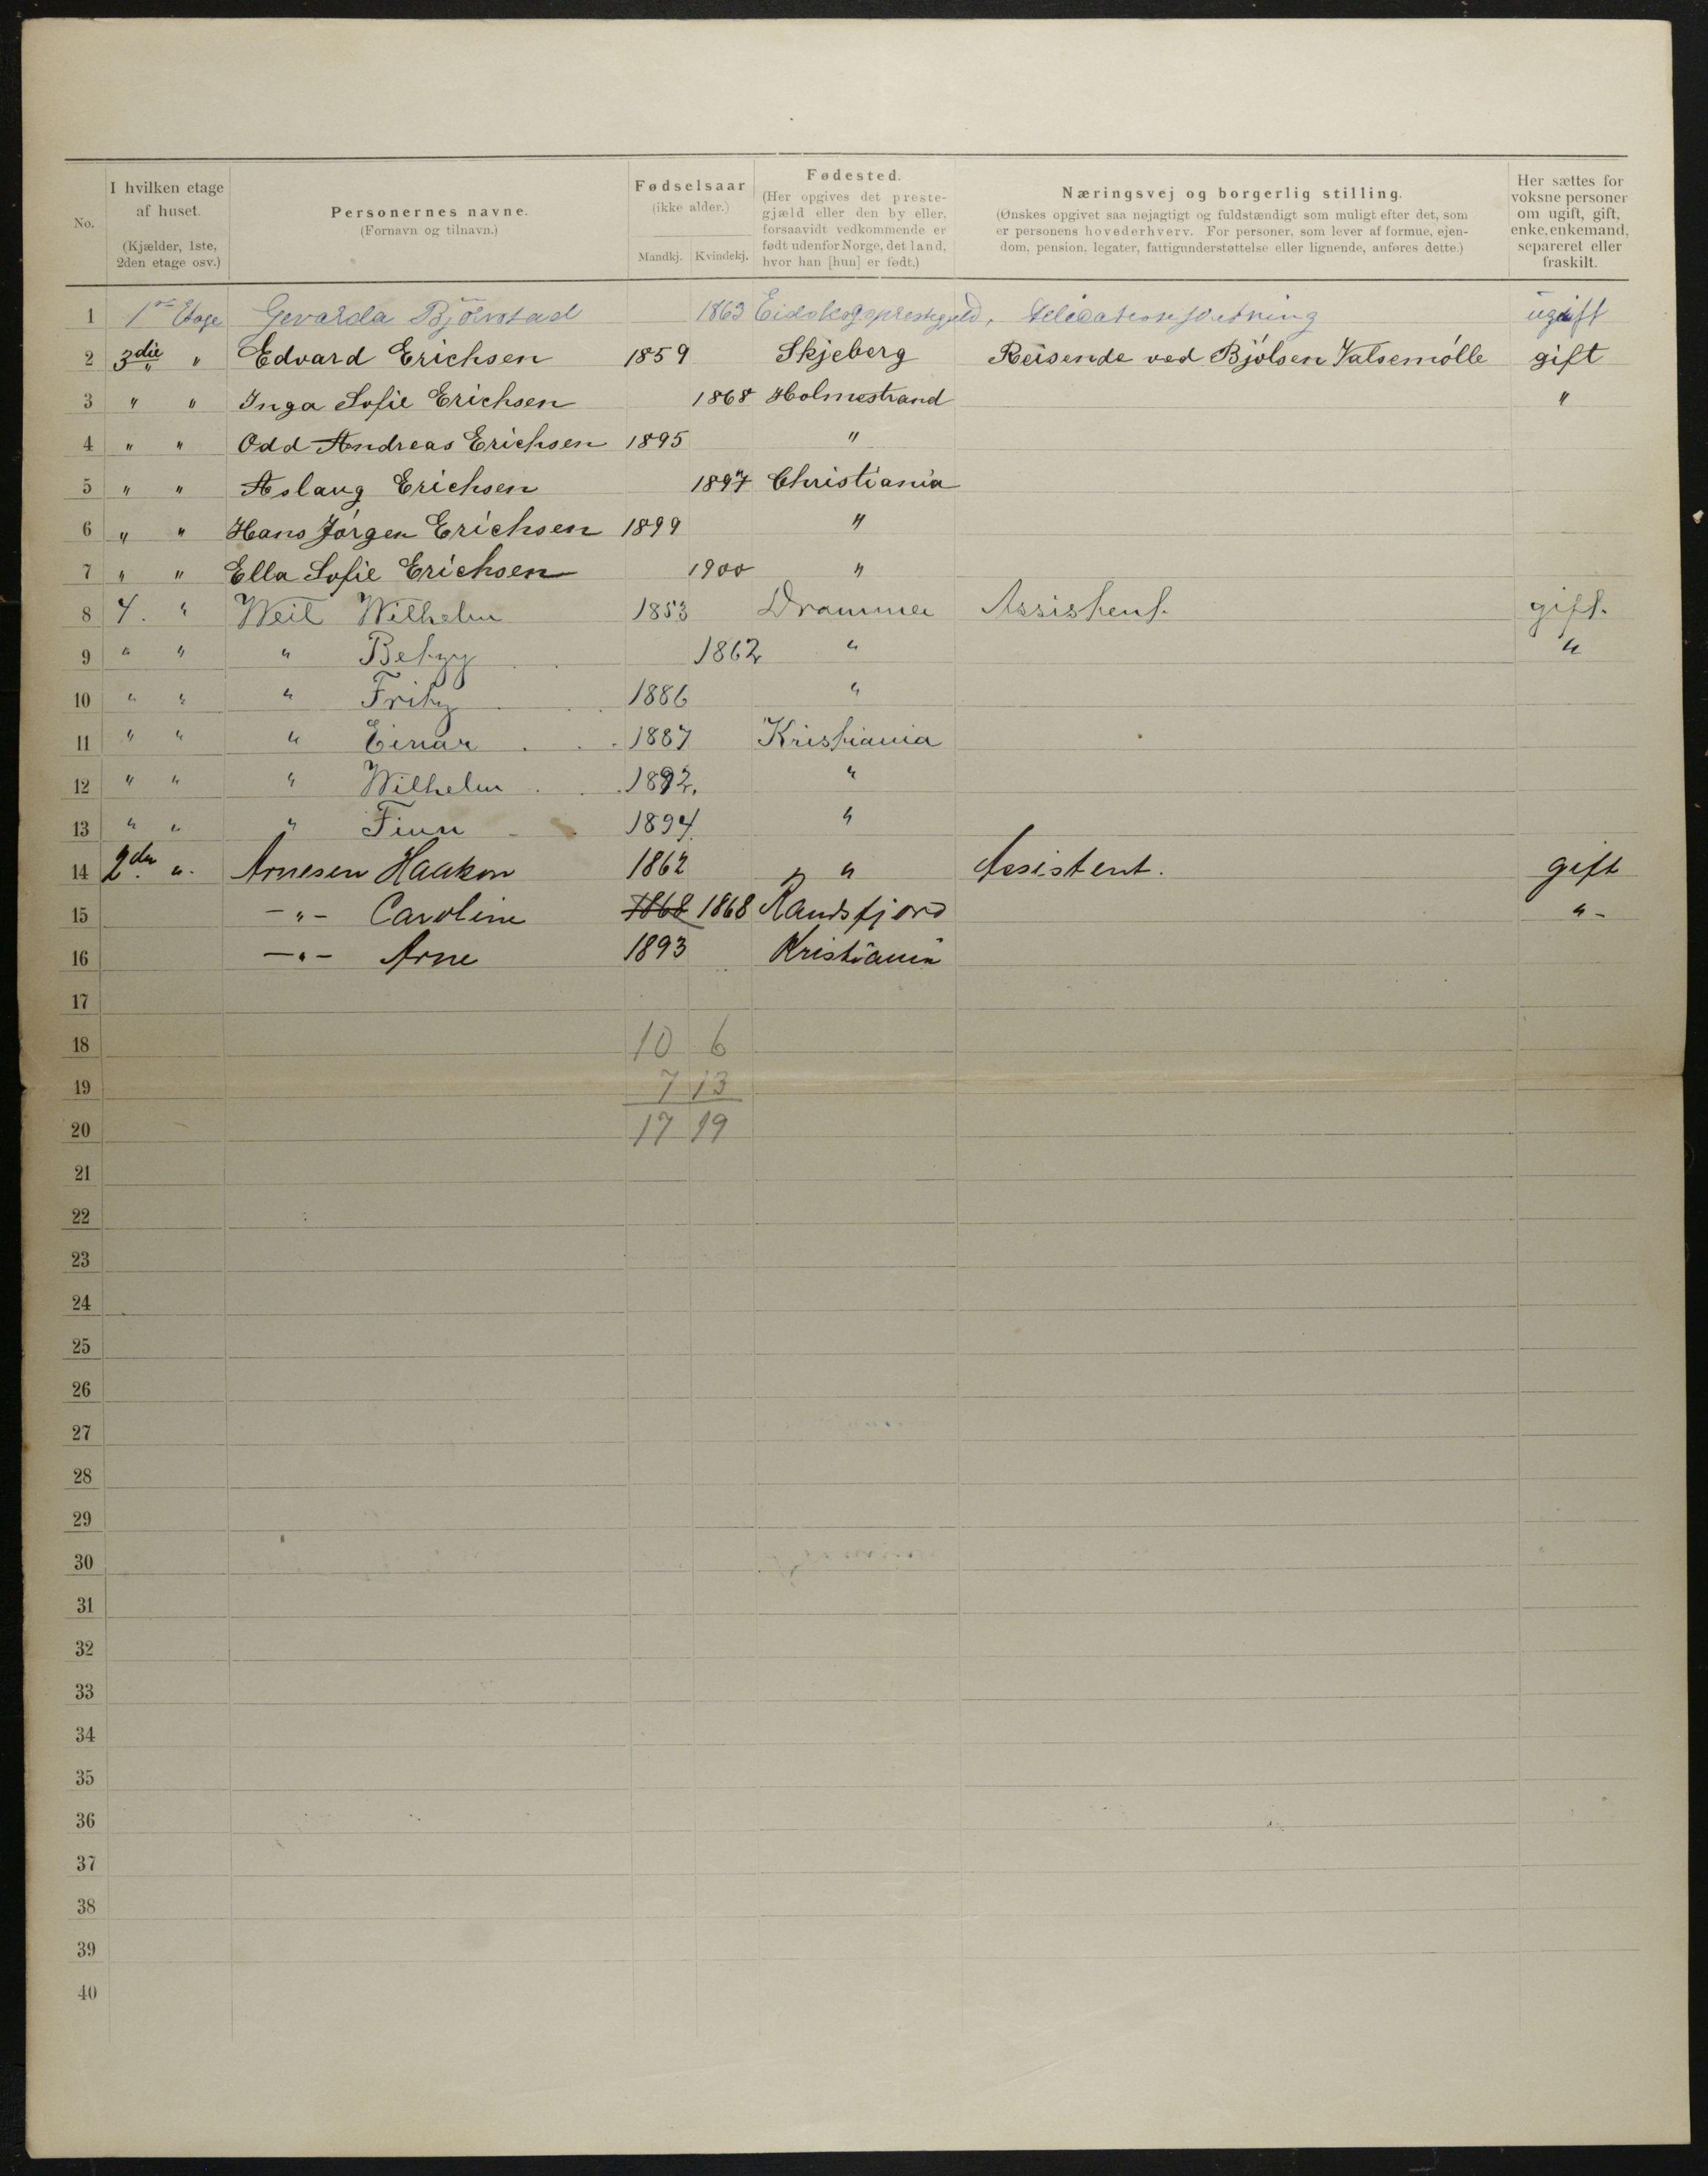 No.
I hvilken etage af huset. (Kjælder, 1ste, 2den etage osv.)
Personernes navne. (Fornavn og tilnavn.)
Fødselsaar (ikke alder.)
Mandkj. Kvindekj.
Fødested. (Her opgives det prestegjæld eller den by eller, forsaavidt vedkommende er født udenfor Norge, det land, hvor han [hun] er født.)
Næringsvej og borgerlig stilling. (Ønskes opgivet saa nøjagtigt og fuldstændigt som muligt efter det, som er personens hovederhverv. For personer, som lever af formue, ejendom, pension, legater, fattigunderstøttelse eller lignende, anføres dette.)
Her sættes for voksne personer om ugift, gift, enke, enkemand, separeret eller fraskilt.
1 Etage Björnstad 1863 ugift
2 3die " Edvard Erichsen 1859 Skjeberg Reisende ved Bjólsen Valsemólle gift
3 " " Inga Sofie Erichsen 1868 Holmestrand "
4 " " Odd Andreas Erichsen 1895 "
5 " " Aslaug Erichsen 1897 Christiania
6 " " Hans Jórgen Erichsen 1899 "
7 " " Ella Sofie Erichsen 1900 "
8 4. " Weil Wilhelm 1853 Drammen Assistent. gift.
9 " " " Betzy 1862 " "
10 " " " Fritz 1886 "
11 " " " Einar 1887 Kristiania
12 " " " Wilhelm 1892. "
13 " " " Finn 1894 "
14 2den " Arnesen Haakon 1862 " " Assistent. gift
15 -"- Caroline 1868 1868 Randsfjord "-
16 -"- Arne 1893 Kristiania
17
18 10 6
19 7 13
20 17 19
21
22
23
24
25
26
27
28
29
30
31
32
33
34
35
36
37
38
39
40